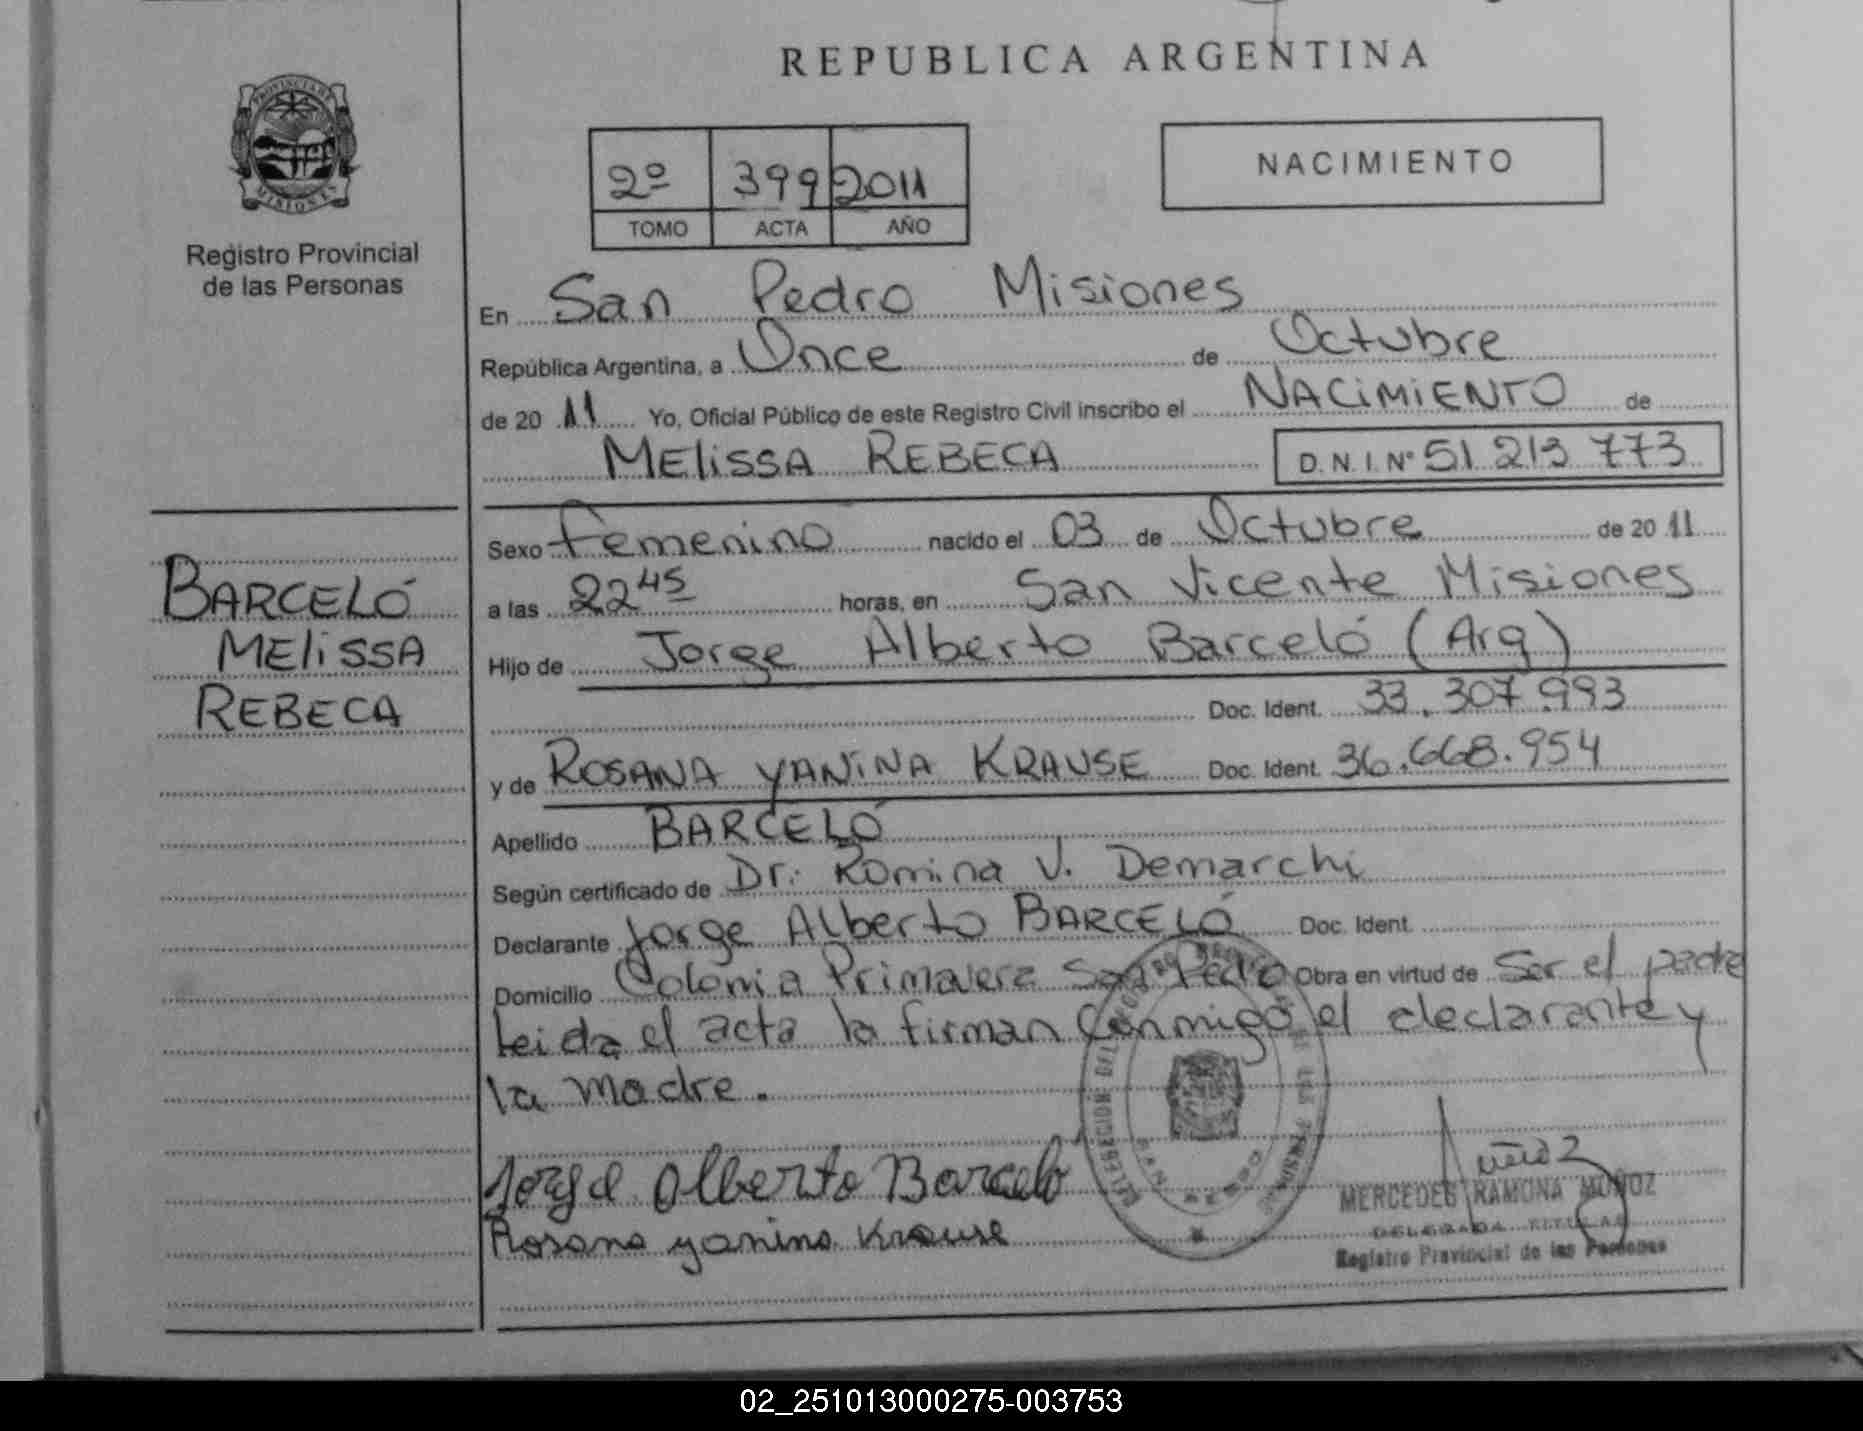 REPUBLICA ARGENTINA
PROVINCIA DE
MISIONES
Registro Provincial
de las Personas
2º 399 2011
TOMO ACTA AÑO
NACIMIENTO
En San Pedro Misiones
República Argentina, a Once de Octubre
de 20 11 Yo, Oficial Público de este Registro Civil inscribo el NACIMIENTO de
MELISSA REBECA D.N.I.Nº 51 213 773
BARCELÓ
MELISSA
REBECA
Sexo Femenino nacido el 03 de Octubre de 20 11
a las 22 45 horas, en San Vicente Misiones
Hijo de Jorge Alberto Barceló (Arg)
Doc. Ident. 33.307.993
y de ROSANA YANINA KRAUSE Doc. Ident. 36.668.954
Apellido BARCELÓ
Según certificado de Dr. Romina V. Demarchi
Declarante Jorge Alberto BARCELÓ Doc. Ident.
Domicilio Colonia Primavera San Pedro Obra en virtud de Ser el padre
Leida el acta la firman Conmigo el declarante y
la madre.
Jorge Alberto Barcelo
Rosana yanina Krause
MERCEDES RAMONA MUÑOZ
DELEGADA TITULAR
Registro Provincial de las Personas
02_251013000275-003753